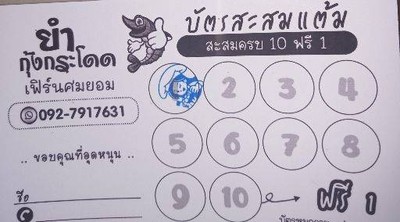 ยำ
กุ้งกระโดด
เฟิร์นศมยอม
092-7917631
.. ขอบคุณที่อุดหนุน ..
ชื่อ
บัตรสะสมแต้ม
สะสมครบ 10 ฟรี 1
2 3 4
5 6 7 8
9 10 ฟรี 1